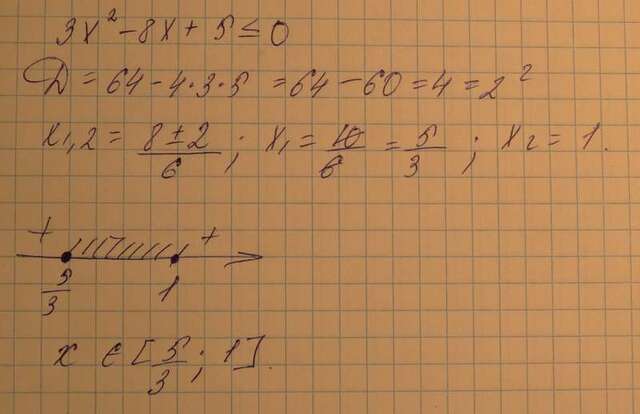 3x² - 8x + 5 ≤ 0
D = 64 - 4·3·5 = 64 - 60 = 4 = 2²
x₁,₂ = (8 ± 2)/6 ; x₁ = 10/6 = 5/3 ; x₂ = 1.
+ +
5/3 1
x ∈ [5/3 ; 1].